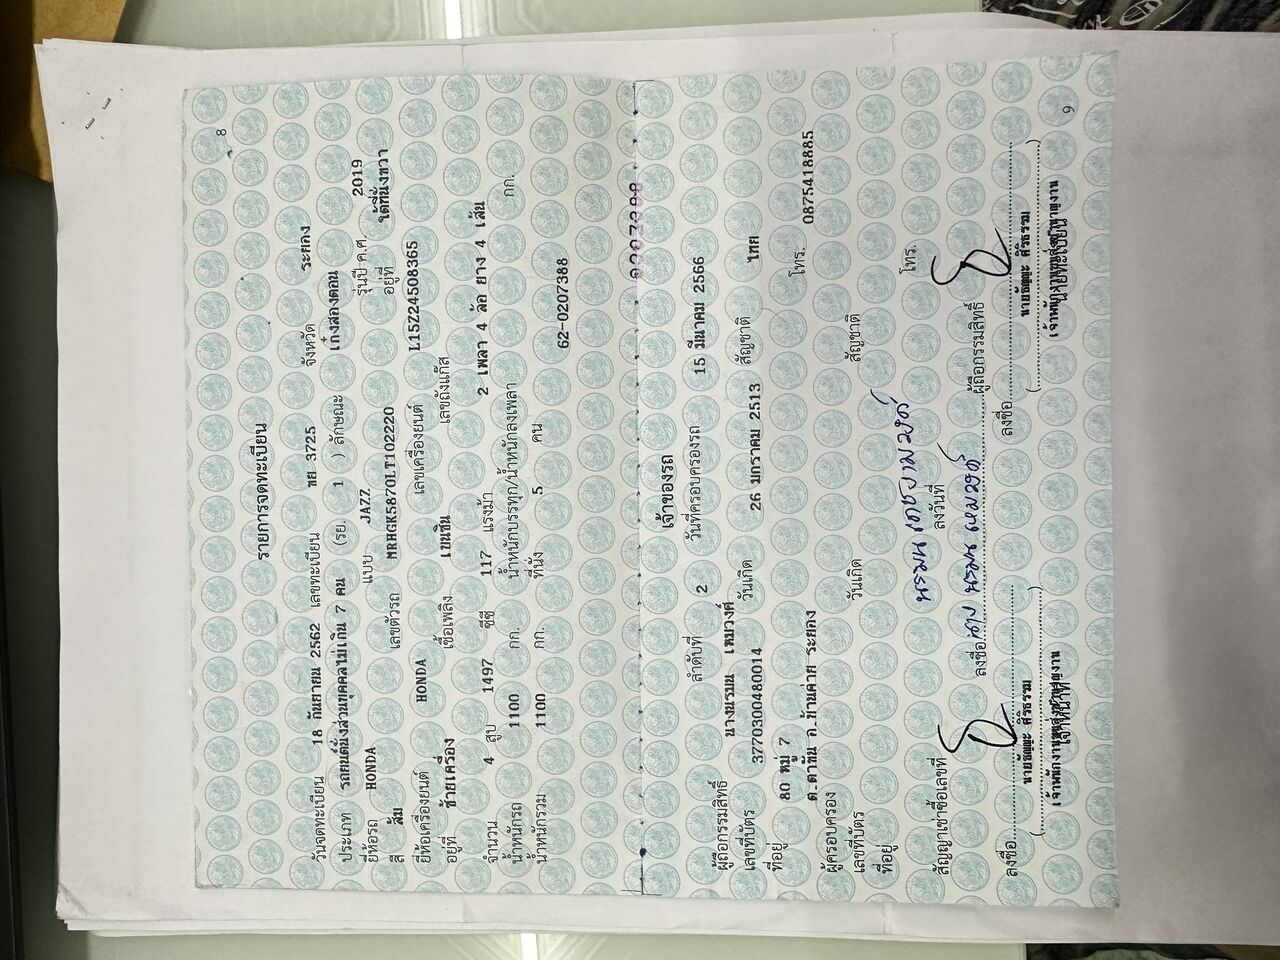 8
รายการจดทะเบียน
วันจดทะเบียน 18 กันยายน 2562 เลขทะเบียน ขย 3725 จังหวัด ระยอง
ประเภท รถยนต์นั่งส่วนบุคคลไม่เกิน 7 คน (รย. 1 ) ลักษณะ เก๋งสองตอน
ยี่ห้อรถ HONDA แบบ JAZZ รุ่นปี ค.ศ. 2019
สี ส้ม เลขตัวรถ MRHGK5870LT102220 อยู่ที่ ใต้ที่นั่งขวา
ยี่ห้อเครื่องยนต์ HONDA เลขเครื่องยนต์ L15Z24508365
อยู่ที่ ซ้ายเครื่อง เชื้อเพลิง เบนซิน เลขถังแก๊ส
จำนวน 4 สูบ 1497 ซีซี 117 แรงม้า 2 เพลา 4 ล้อ ยาง 4 เส้น
น้ำหนักรถ 1100 กก. น้ำหนักบรรทุก/น้ำหนักลงเพลา กก.
น้ำหนักรวม 1100 กก. ที่นั่ง 5 คน
62-0207388
เจ้าของรถ
ลำดับที่ 2 วันที่ครอบครองรถ 15 มีนาคม 2566
ผู้ถือกรรมสิทธิ์ นางนรมน เหมวงศ์
เลขที่บัตร 3770300480014 วันเกิด 26 มกราคม 2513 สัญชาติ ไทย
ที่อยู่ 80 หมู่ 7
ต.ตาขัน อ.บ้านค่าย ระยอง โทร. 0875418885
ผู้ครอบครอง
เลขที่บัตร วันเกิด สัญชาติ
ที่อยู่
โทร.
สัญญาเช่าซื้อเลขที่ ลงวันที่
ลงชื่อ นาง นรมน เหมวงศ์ ผู้ถือกรรมสิทธิ์
ลงชื่อ ลงชื่อ
9